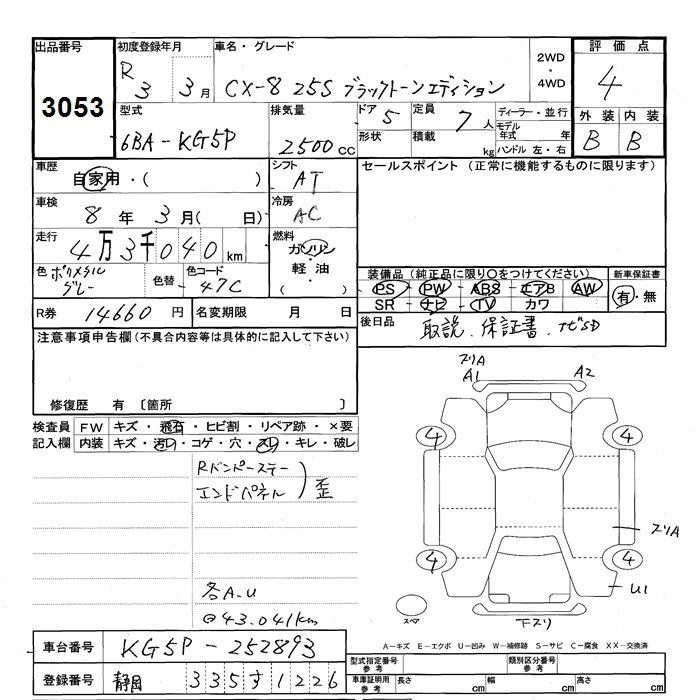 出品番号 初度登録年月 車名・グレード 2WD・4WD 評価点
3053 R3 3月 CX-8 25S ブラックトーンエディション 4
型式 排気量 ドア 5 定員 7人 ディーラー・並行 外装 内装
6BA-KG5P 2500cc 形状 積載 kg モデル年式 年 ハンドル 左・右 B B
車歴 自家用・( ) シフト AT セールスポイント (正常に機能するものに限ります)
車検 8年 3月( 日) 冷房 AC
走行 4万3千040km 燃料 ガソリン・軽油・( )
色 ポリメタルグレー 色替 色コード 47C 装備品(純正品に限り○をつけてください) 新車保証書
PS PW ABS エアB AW 有・無
SR ナビ TV カワ
R券 14660円 名変期限 月 日 後日品 取説、保証書、ナビSD
注意事項申告欄(不具合内容等は具体的に記入して下さい)
修復歴 有 〔箇所 〕
検査員記入欄 FW キズ・飛石・ヒビ割・リペア跡・×要
内装 キズ・汚れ・コゲ・穴・スレ・キレ・破レ
Rバンパーステー
エンドパネル
歪
各A.U
@43.041km
スリA
A1 A2
4 4
スリA
4 4
U1
スペ
下スリ
A-キズ E-エクボ U-凹み W-補修跡 S-サビ C-腐食 XX-交換済
車台番号 KG5P-252893 型式指定番号 参考 類別区分番号 参考
登録番号 静岡 335す1226 車庫証明用 参考 長さ cm 幅 cm 高さ cm